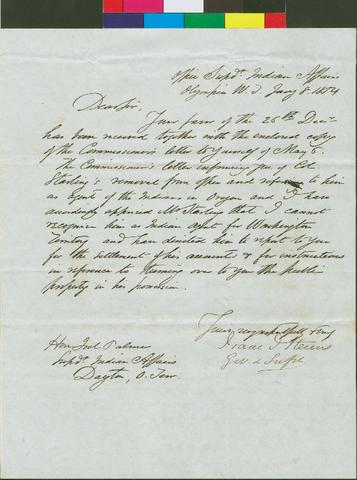 Office Supdt. Indian Affairs
Olympia W. T. Jany 8 1854
Dear Sir,
Your favor of the 26th Decr
has been received together with the enclosed copy
of the Commissioner's letter to yourself of May 5.
The Commissioner's letter informing you of Col
Starling's removal from office and refers to him
as agent of the Indians in Oregon and I have
accordingly apprised Mr Starling that I cannot
recognize him as Indian agent for Washington
Territory and have directed him to report to you
for the settlement of his accounts & for instructions
in reference to turning over to you the public
property in his possession.
Yours, respectfully &
Isaac I. Stevens
Gov. & Supt
Hon Joel Palmer
Supdt. Indian Affairs
Dayton, O. Ter.